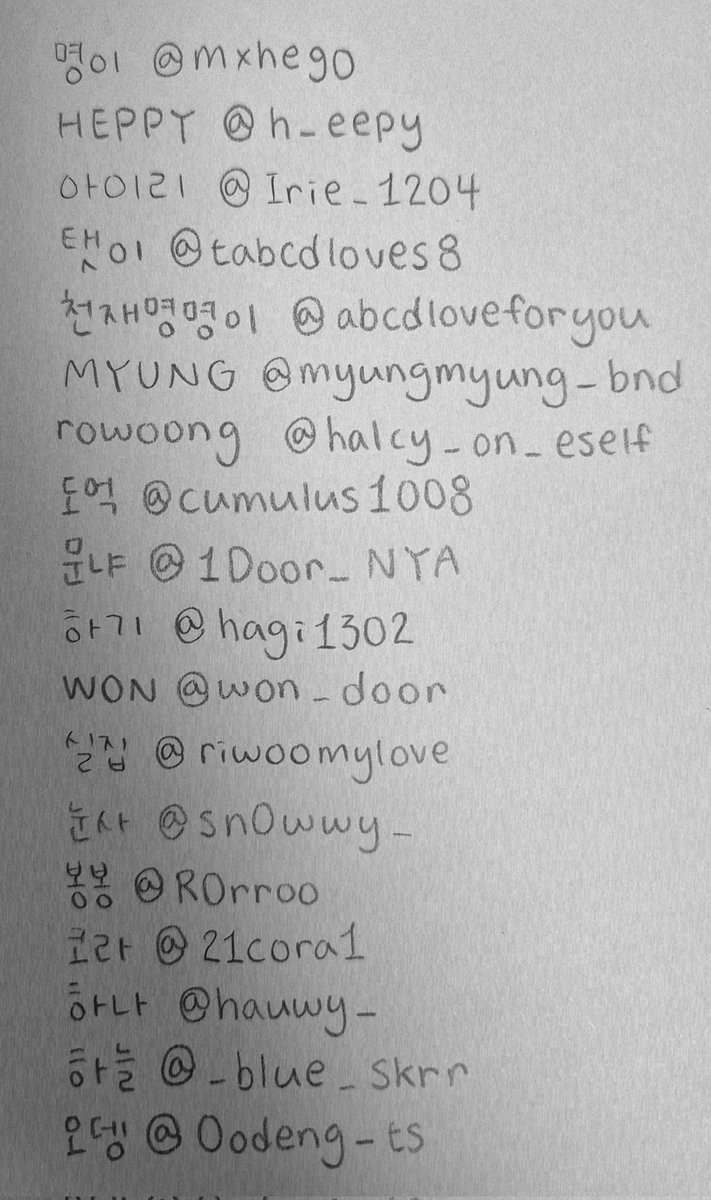 명이 @mxhego
HEPPY @h_eepy
아이리 @Irie_1204
탯이 @tabcdloves8
천재명명이 @abcdloveforyou
MYUNG @myungmyung_bnd
rowoong @halcy_on_eself
도억 @cumulus1008
문냐 @1Door_NYA
하기 @hagi1302
WON @won_door
실집 @riwoomylove
눈사 @sn0wwy_
봉봉 @R0rroo
코라 @21cora1
하나 @hauwy_
하늘 @_blue_skrr
오뎅 @Oodeng_ts